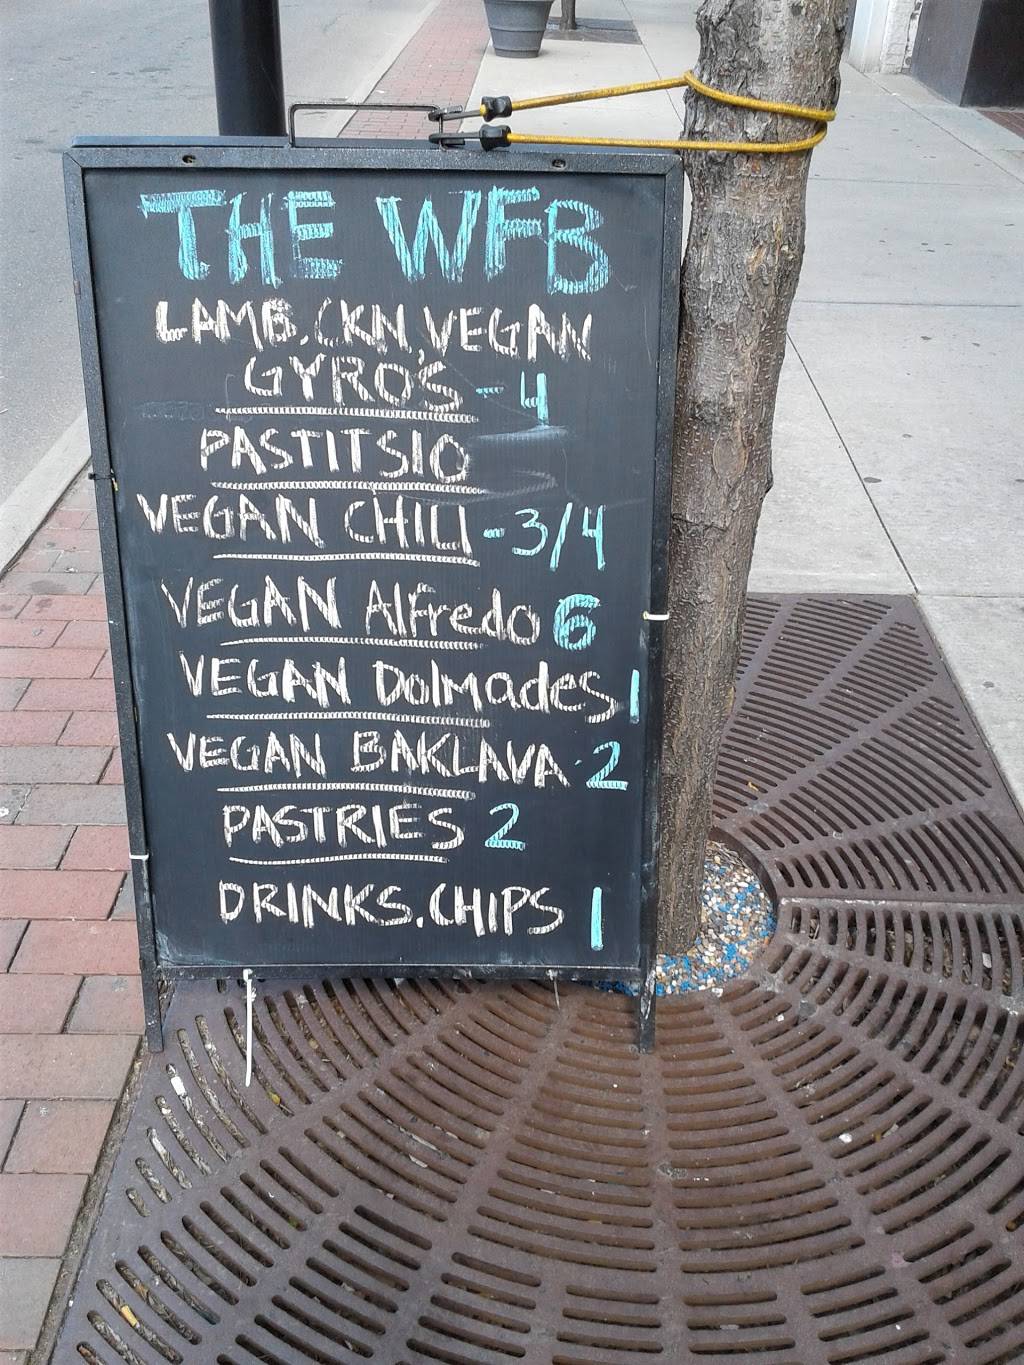 THE WFB
LAMB, CKN, VEGAN
GYRO'S - 4
PASTITSIO
VEGAN CHILI - 3/4
VEGAN Alfredo 6
VEGAN Dolmades 1
VEGAN BAKLAVA 2
PASTRIES 2
DRINKS, CHIPS 1